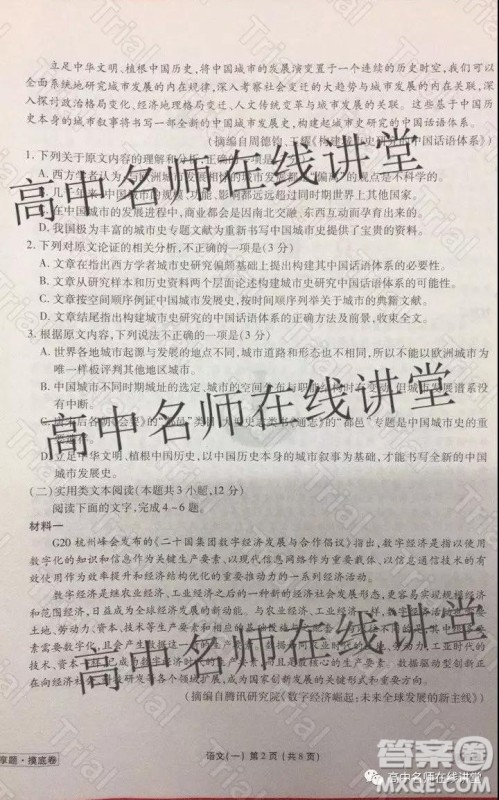 立足中华文明、植根中国历史,将中国城市的发展演变置于一个连续的历史时空,我们可以
全面系统地研究城市发展的内在规律,深入考察社会变迁的大趋势与城市发展的内在关联,深
入探讨政治格局变化、经济地理格局变迁、人文传统变革与城市发展的关系。这些基于中国历
史本身的城市叙事将书写一部全新的中国城市发展史,构建起城市史研究的中国话语体系。
(摘编自周德钧、王耀《构建城市史研究的中国话语体系》)
1. 下列关于原文内容的理解和分析,正确的一项是(3分)
A. 西方学者认为
的观点是不科学的。
B. 几千年来,中国城市的规模、功能、影响都远远超过同时期世界上其他国家。
C. 在中国城市的发展进程中,商业都会是因南北交融、东西互动而孕育出来的。
D. 我国极为丰富的城市史专题文献为重新书写中国城市史提供了宝贵的资料。
2. 下列对原文论证的相关分析,不正确的一项是(3分)
A. 文章在指出西方学者城市史研究偏颇基础上提出构建其中国话语体系的必要性。
B. 文章从研究样本和历史资料两个层面论述构建城市史研究中国话语体系的可能性。
C. 文章按空间顺序例证中国城市发展史,按历时顺序例举关于城市的典籍文献。
D. 文章结尾指出构建城市史的中国话语体系的正确方法及前景,收束全文。
3. 根据原文内容,下列说法不正确的一项是(3分)
A. 世界各地城市起源与发展的地点不同,城市道路和形态也不相同,所以不能以欧洲城市为
唯一样板评判其他地区城市。
B. 中国城市不同时期城址的选定、城市的空间分布与职能结构时有变动,但城市发展谱系没
有中断。
C.
“都邑”类目、大型史志类书《通志》的“都邑”专题是中国城市史的重
要资料。
D. 立足中华文明、植根中国历史,以中国历史自身的城市叙事为基础,就能构建起全新的中国
城市发展史。
(二)实用类文本阅读(本题共3小题,12分)
阅读下面的文字,完成4~6题。
材料一
G20 杭州峰会发布的《二十国集团数字经济发展与合作倡议》指出:数字经济是指以使用
数字化的知识和信息作为关键生产要素、以现代信息网络作为重要载体、以信息通信技术的有
效使用作为效率提升和经济结构优化的重要推动力的一系列经济活动。
数字经济是继农业经济、工业经济之后的一种新的经济社会发展形态,更容易实现规模经济
和范围经济,日益成为全球经济发展的新动能。与农业经济、工业经济
土地、劳动力、资本、
素需要数字化,且会产生数据这一
的土地、劳动力,工业时代的
技术、资本一样,已成为数字经济时代的生产要素,而且是最核心的生产要素。数据驱动型创新正
在向经济社会、科技研发等各个领域扩展,成为国家创新发展的关键形式和重要方向。
(摘编自腾讯研究院《数字经济崛起:未来全球发展的新主线》)
语文(一) 第2页(共8页)
摸底卷
高中名师在线讲堂
高中名师在线讲堂
高中名师在线讲堂
Trial
答案圈
MXQE.COM
高中名师在线讲堂